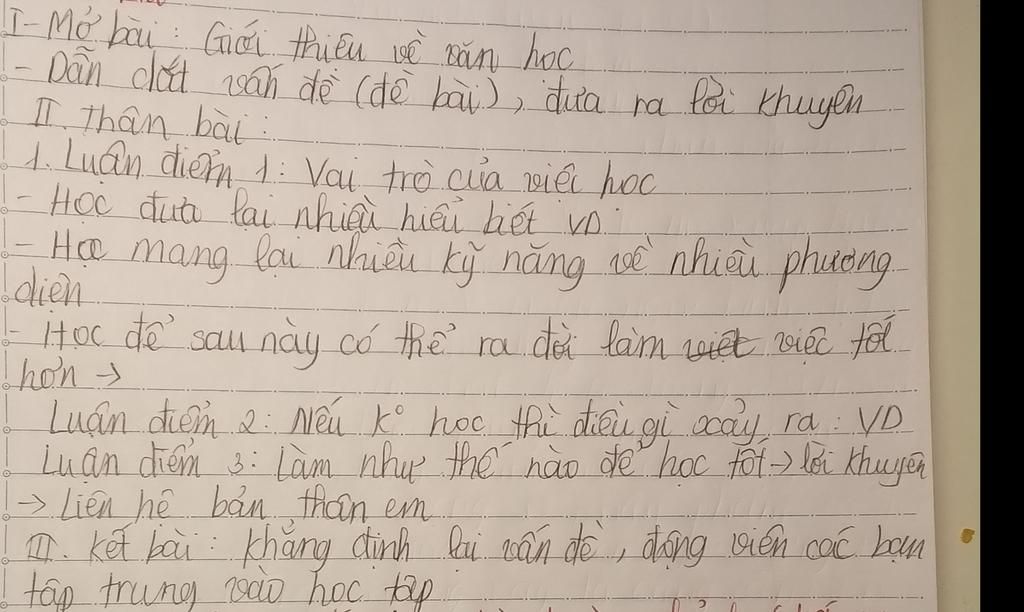 I - Mở bài : Giới thiệu về văn học
- Dẫn dắt vấn đề (đề bài), đưa ra lời khuyên
II. Thân bài :
1. Luận điểm 1 : Vai trò của việc học
- Học đưa lại nhiều hiểu biết VD :
- Học mang lại nhiều kỹ năng về nhiều phương
diện
- Học để sau này có thể ra đời làm việt việc tốt
hơn →
Luận điểm 2 : Nếu k° học thì điều gì xảy ra : VD
Luận điểm 3 : Làm như thế nào để học tốt → lời khuyên
→ Liên hệ bản thân em
III. Kết bài : Khẳng định lại vấn đề, động viên các bạn
tập trung vào học tập